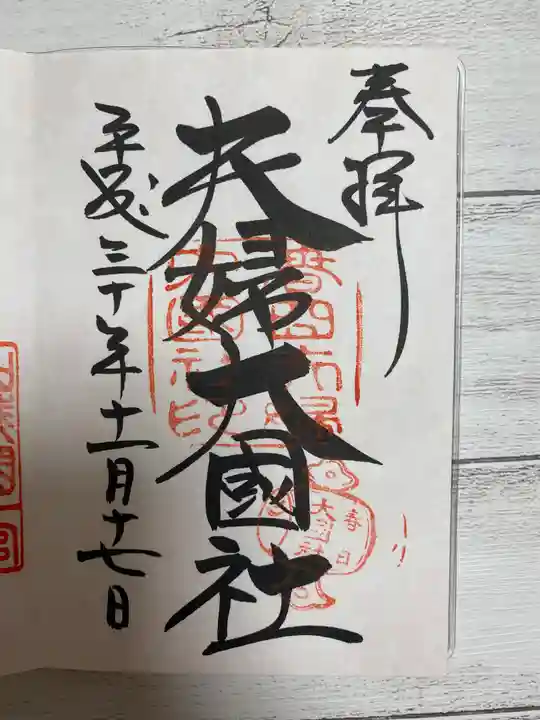 奉拝
夫婦大國社
平成三十年十一月十七日
春日